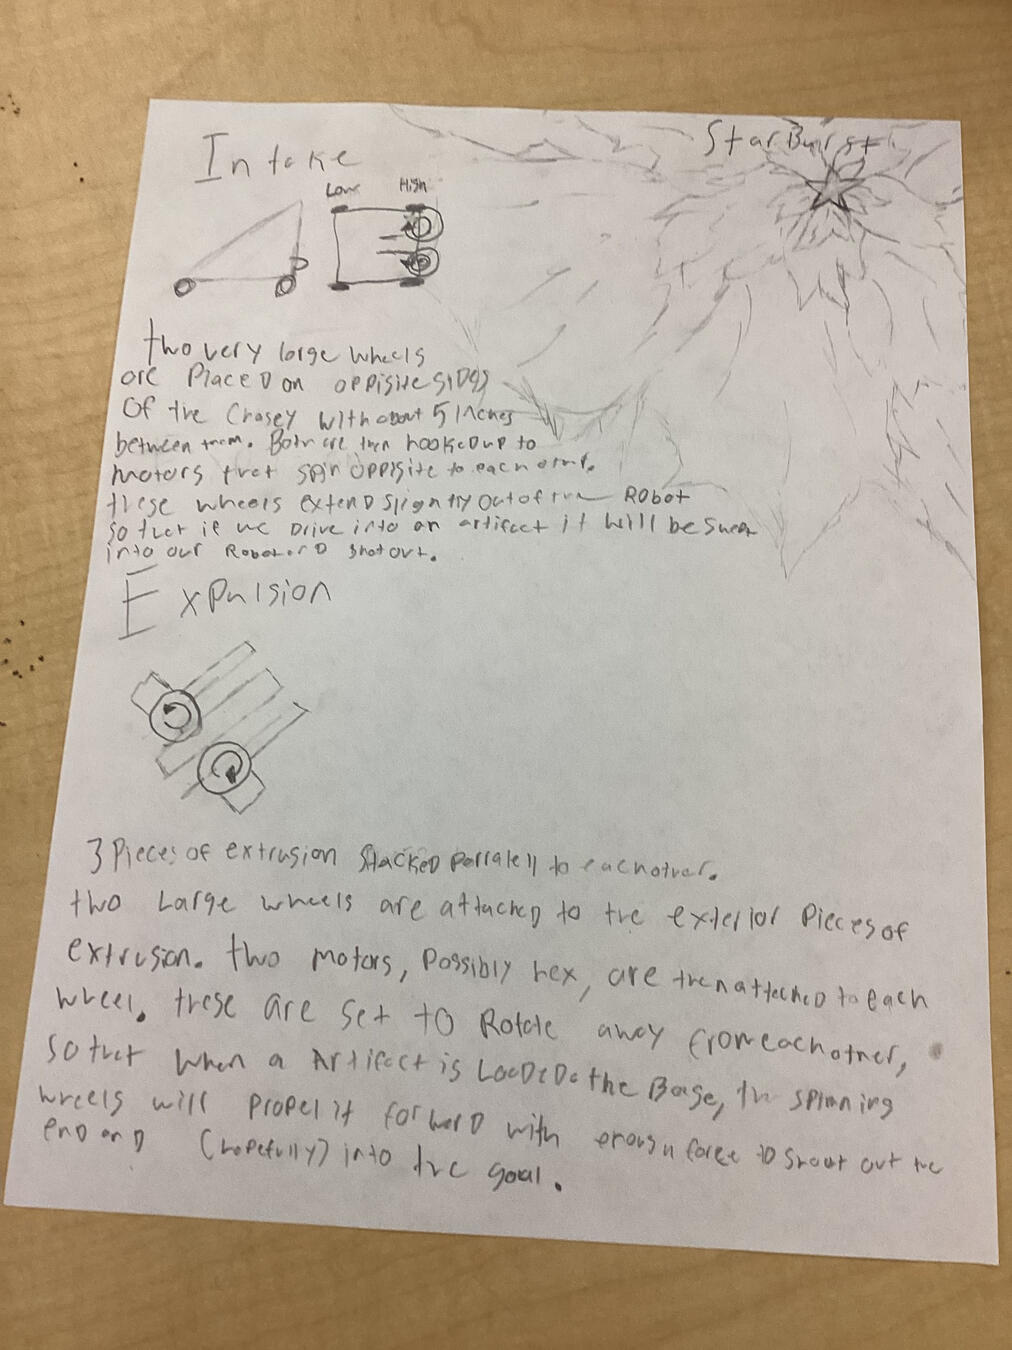 Intake
StarBurst
Low High
two very large wheels
are Placed on oppisite sides
Of the Chasey with about 5 Inches
between them. Both are then hooked up to
motors that spin oppisite to each other.
these wheels extend slightly out of the Robot
so that if we Drive into an artifact it will be
into our Robot and shot out.
Expulsion
3 Pieces of extrusion Stacked Perralell to each other.
two Large wheels are attached to the exterior Pieces of
extrusion. two motors, Possibly hex, are then attached to each
wheel. these are set to Rotate away from each other,
so that when a Artifact is Loaded the Base, the spinning
wheels will propel it forward with enough force to shoot out the
end and (hopefully) into the goal.